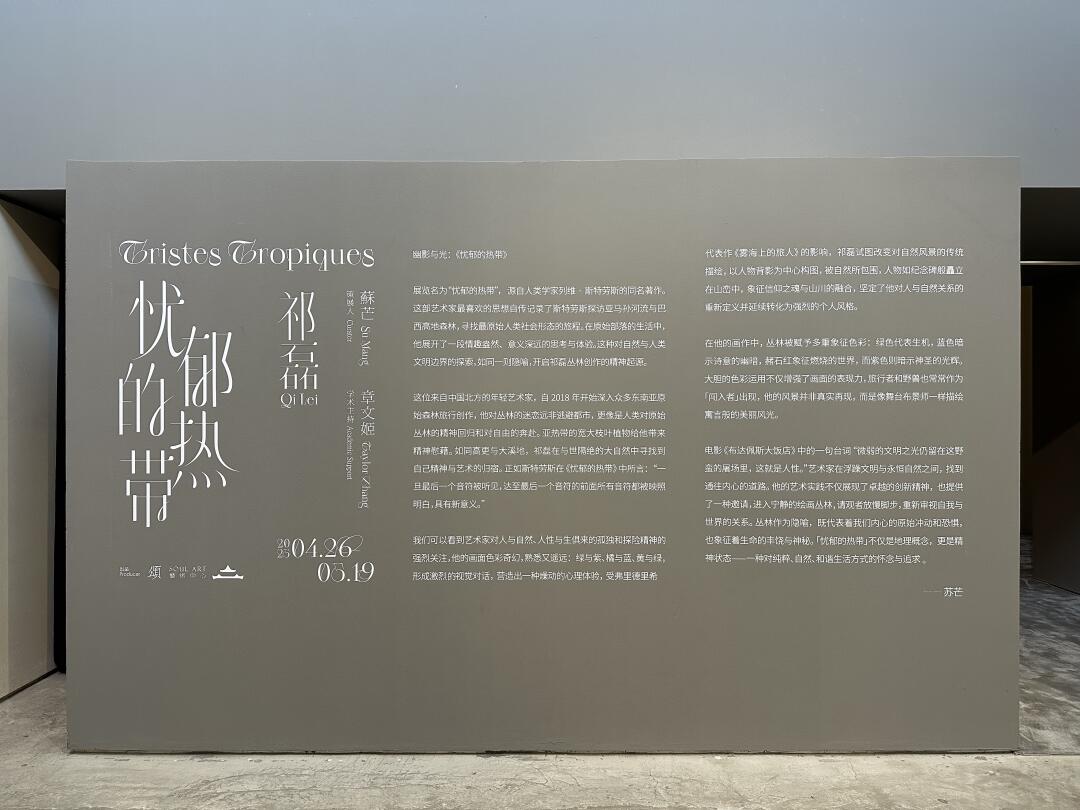 Tristes Tropiques
忧郁的热带
祁磊
Qi Lei
蘇芒 Su Mang
策展人 Curator
章文姬 Taylor Zhang
学术主持 Academic Support
2025
04.26
05.19
出品
Producer
頌
SOUL ART
藝術中心
幽影与光:《忧郁的热带》
展览名为“忧郁的热带”，源自人类学家列维·斯特劳斯的同名著作。
这部艺术家最喜欢的思想自传记录了斯特劳斯探访亚马孙河流与巴
西高地森林，寻找最原始人类社会形态的旅程。在原始部落的生活中，
他展开了一段情趣盎然、意义深远的思考与体验。这种对自然与人类
文明边界的探索，如同一则隐喻，开启祁磊丛林创作的精神起源。
这位来自中国北方的年轻艺术家，自 2018 年开始深入众多东南亚原
始森林旅行创作，他对丛林的迷恋远非逃避都市，更像是人类对原始
丛林的精神回归和对自由的奔赴。亚热带的宽大枝叶植物给他带来
精神慰藉。如同高更与大溪地，祁磊在与世隔绝的大自然中寻找到
自己精神与艺术的归宿。正如斯特劳斯在《忧郁的热带》中所言：“一
旦最后一个音符被听见，达至最后一个音符的前面所有音符都被映照
明白，具有新意义。”
我们可以看到艺术家对人与自然、人性与生俱来的孤独和探险精神的
强烈关注，他的画面色彩奇幻，熟悉又遥远：绿与紫、橘与蓝、黄与绿，
形成激烈的视觉对话，营造出一种燥动的心理体验，受弗里德里希
代表作《雾海上的旅人》的影响，祁磊试图改变对自然风景的传统
描绘，以人物背影为中心构图，被自然所包围，人物如纪念碑般矗立
在山峦中，象征信仰之魂与山川的融合，坚定了他对人与自然关系的
重新定义并延续转化为强烈的个人风格。
在他的画作中，丛林被赋予多重象征色彩：绿色代表生机，蓝色暗
示诗意的幽暗，赭石红象征燃烧的世界，而紫色则暗示神圣的光辉。
大胆的色彩运用不仅增强了画面的表现力，旅行者和野兽也常常作为
「闯入者」出现，他的风景并非真实再现，而是像舞台布景师一样描绘
寓言般的美丽风光。
电影《布达佩斯大饭店》中的一句台词“微弱的文明之光仍留在这野
蛮的屠场里，这就是人性。”艺术家在浮躁文明与永恒自然之间，找到
通往内心的道路。他的艺术实践不仅展现了卓越的创新精神，也提供
了一种邀请，进入宁静的绘画丛林，请观者放慢脚步，重新审视自我与
世界的关系。丛林作为隐喻，既代表着我们内心的原始冲动和恐惧，
也象征着生命的丰饶与神秘。「忧郁的热带」不仅是地理概念，更是精
神状态——一种对纯粹、自然、和谐生活方式的怀念与追求。
—— 苏芒